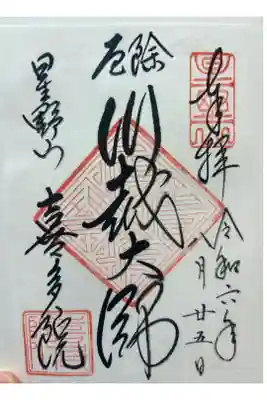 奉拝 令和六年
八月廿五日
厄除
川越大師
星野山
喜多院